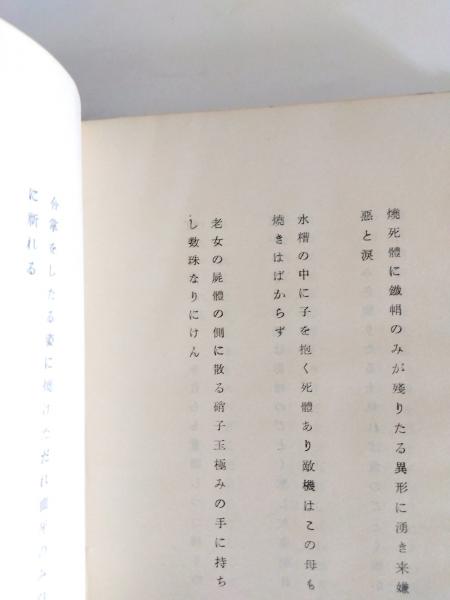 燒死體に鐵帽のみが殘りたる異形に湧き來嫌
惡と淚
水槽の中に子を抱く死體あり敵機はこの母も
燒きはばからず
老女の屍體の側に散る硝子玉極みの手に持ち
し数珠なりにけん
合掌をしたる姿に燒けただれ
に斷れる